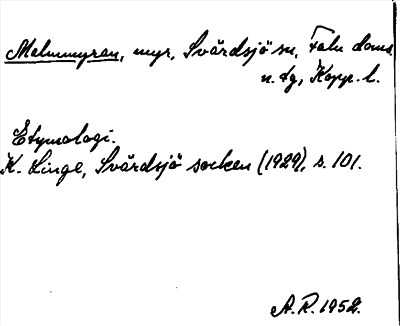 Malmmyran, myr, Svärdsjö sn, Falu doms
n. tg, Kopp. l.
Etymologi.
K. Linge, Svärdsjö socken (1929), s. 101.
A.R. 1952.